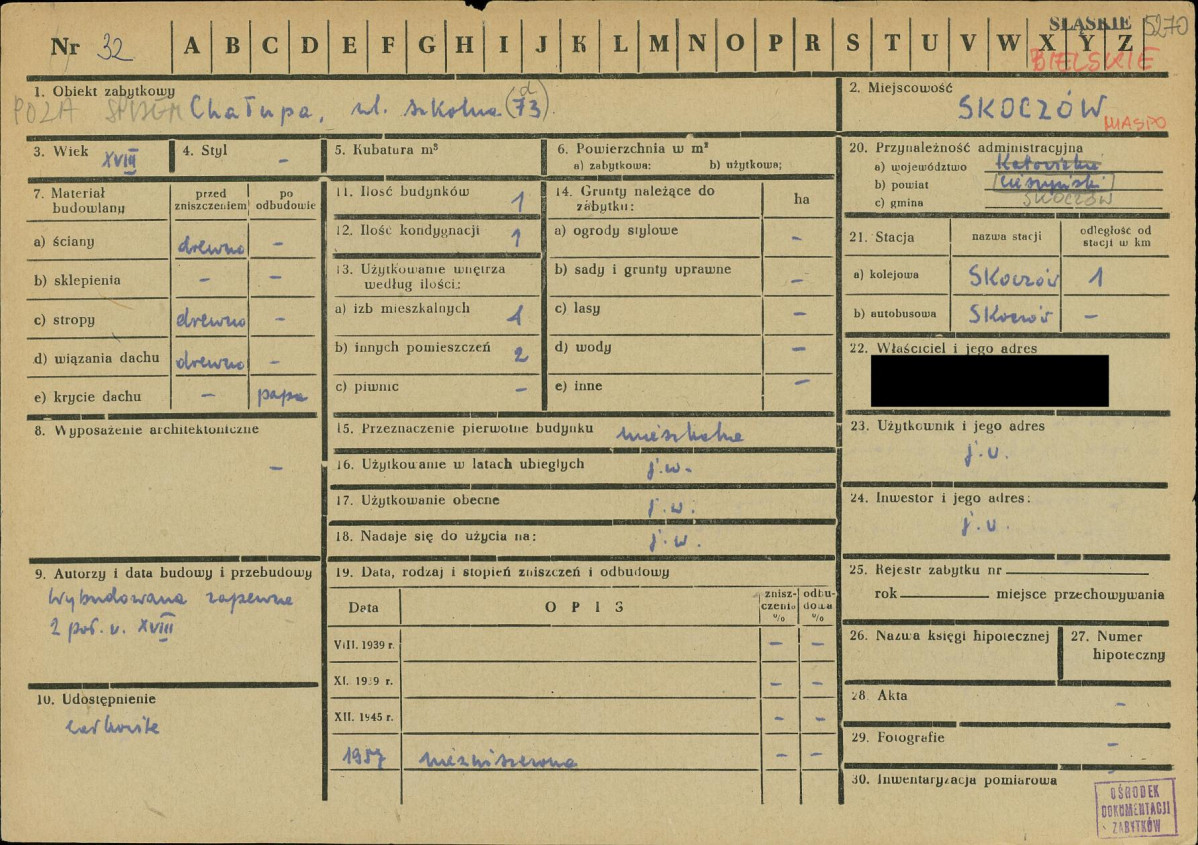 Nr 32 A B C D E F G H I J K L M N O P R S T U V W X Y Z
ŚLĄSKIE 5270
BIELSKIE
1. Obiekt zabytkowy
POZA Chałupa, ul. szkolna (73) d
2. Miejscowość
SKOCZÓW
MIASPO
3. Wiek XVIII
4. Styl –
5. Kubatura m³
6. Powierzchnia w m²
a) zabytkowa: b) użytkowa:
7. Materiał budowlany
przed zniszczeniem
po odbudowie
a) ściany drewno –
b) sklepienia – –
c) stropy drewno –
d) wiązania dachu drewno –
e) krycie dachu – papa
8. Wyposażenie architektoniczne
–
9. Autorzy i data budowy i przebudowy
Wybudowana zapewne
2 poł. w. XVIII
10. Udostępnienie
całkowite
11. Ilość budynków 1
12. Ilość kondygnacji 1
13. Użytkowanie wnętrza
według ilości:
a) izb mieszkalnych 1
b) innych pomieszczeń 2
c) piwnic –
14. Grunty należące do
zabytku: ha
a) ogrody stylowe –
b) sady i grunty uprawne –
c) lasy –
d) wody –
e) inne –
15. Przeznaczenie pierwotne budynku mieszkalne
16. Użytkowanie w latach ubiegłych j.w.
17. Użytkowanie obecne j.w.
18. Nadaje się do użycia na: j.w.
19. Data, rodzaj i stopień zniszczeń i odbudowy
Data OPIS znisz-czenia % odbu-dowa %
VIII. 1939 r. – –
XI. 1939 r. – –
XII. 1945 r. – –
1957 niezniszczona – –
20. Przynależność administracyjna
a) województwo Katowickie
b) powiat Cieszyński
c) gmina SKOCZÓW
21. Stacja
nazwa stacji
odległość od stacji w km
a) kolejowa Skoczów 1
b) autobusowa Skoczów –
22. Właściciel i jego adres
23. Użytkownik i jego adres
j.w.
24. Inwestor i jego adres:
j.w.
25. Rejestr zabytku nr
rok miejsce przechowywania
26. Nazwa księgi hipotecznej
27. Numer
hipoteczny
28. Akta –
29. Fotografie –
30. Inwentaryzacja pomiarowa
OŚRODEK
DOKUMENTACJI
ZABYTKÓW